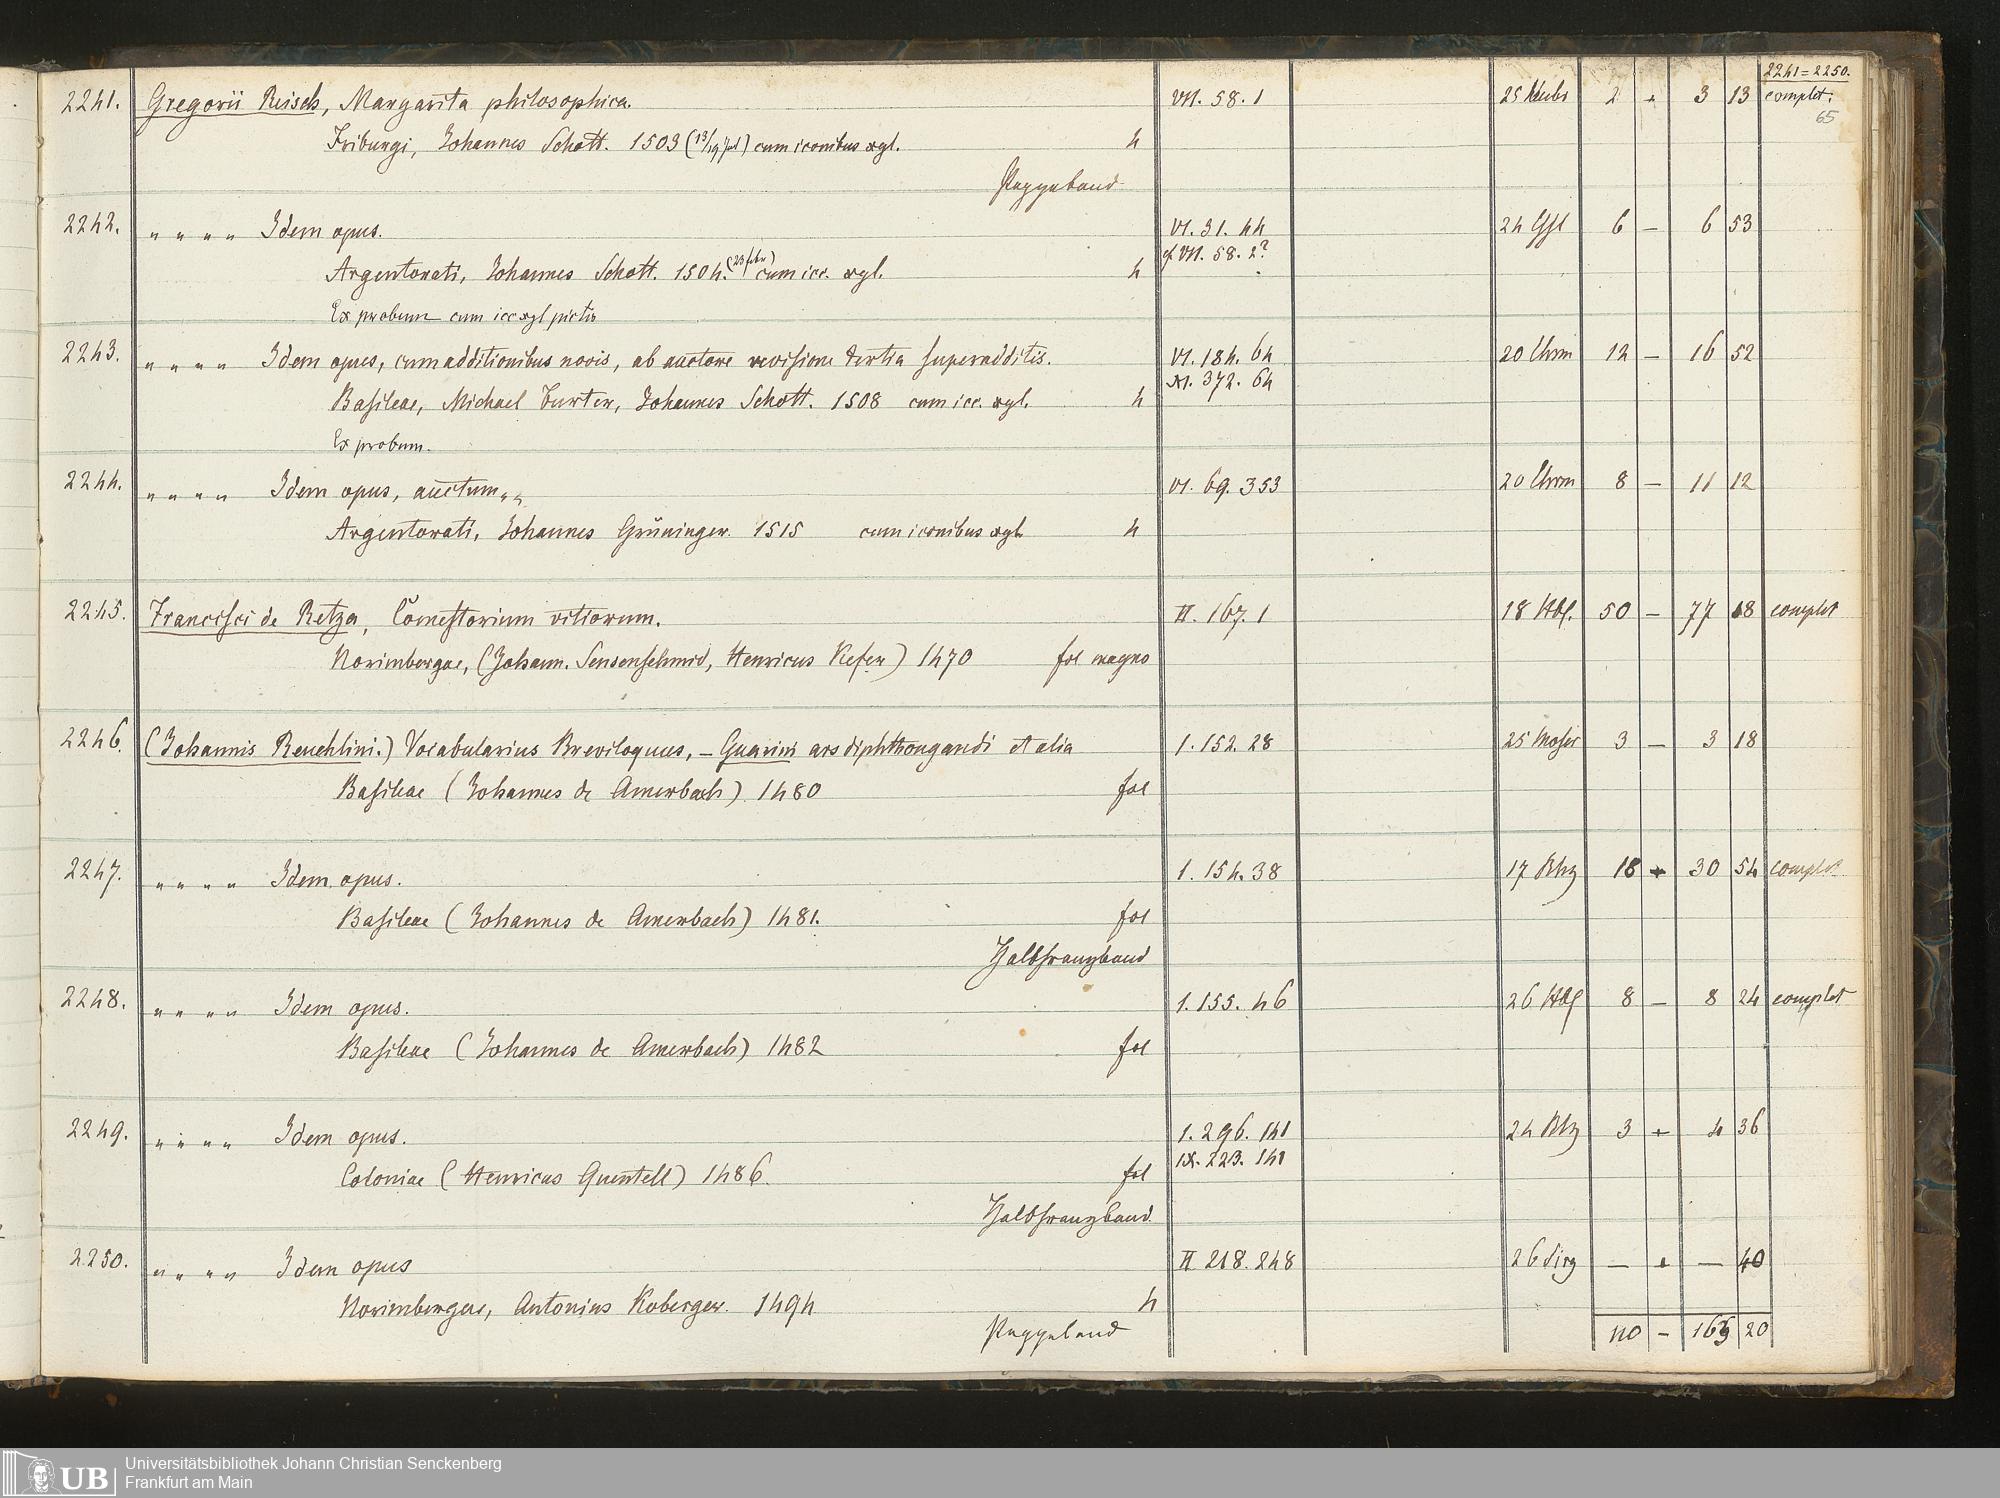 2241=2250.
2241. Gregorii Reisch, Margarita philosophica. VII. 58. 1 25 2 + 3 13 complet.
65
Friburgi, Johannes Schott. 1503 (13/19 Jul) cum iconibus xyl. 4
Pappeband
2242. " " " " Idem opus. VI. 31. 44 24 6 — 6 53
cf VII. 58. 2?
Argentorati, Johannes Schott. 1504. (23 febr) cum icc. xyl. 4
Ex probum cum icc xyl pictis
2243. " " " " Idem opus, cum additionibus novis, ab auctore revisione tertia superadditis. VI. 184. 64 20 Chrm 12 — 16 52
XI. 372. 64
Basileae, Michael Furter, Johannes Schott. 1508 cum icc. xyl. 4
Ex probum.
2244. " " " " Idem opus, auctum " " VI. 69. 353 20 Chrm 8 — 11 12
Argentorati, Johannes Grüninger. 1515 cum iconibus xyl. 4
2245. Francisci de Retza, Comestorium vitiorum. II. 167. 1 18 50 — 77 18 complet
Norimbergae, (Johann. Sensenschmid, Henricus Kefer) 1470 fol magno
2246. (Johannis Reuchlini.) Vocabularius Breviloquus, — Guarini ars diphthongandi et alia 1. 152. 28 25 Moser 3 — 3 18
Basileae (Johannes de Amerbach) 1480 fol
2247. " " " " Idem opus. 1. 154. 38 17 18 + 30 54 complet
Basileae (Johannes de Amerbach) 1481. fol
Halbfranzband
2248. " " " " Idem opus. 1. 155. 46 26 8 — 8 24 complet
Basileae (Johannes de Amerbach) 1482 fol
2249. " " " " Idem opus. 1. 296. 141 24 3 + 4 36
IX. 223. 141
Coloniae (Henricus Quentell) 1486. fol
Halbfranzband
2250. " " " " Idem opus II 218. 248 26 — + — 40
Norimbergae, Antonius Koberger. 1494 4
Pappeband
110 — 163 20
UB
Universitätsbibliothek Johann Christian Senckenberg
Frankfurt am Main